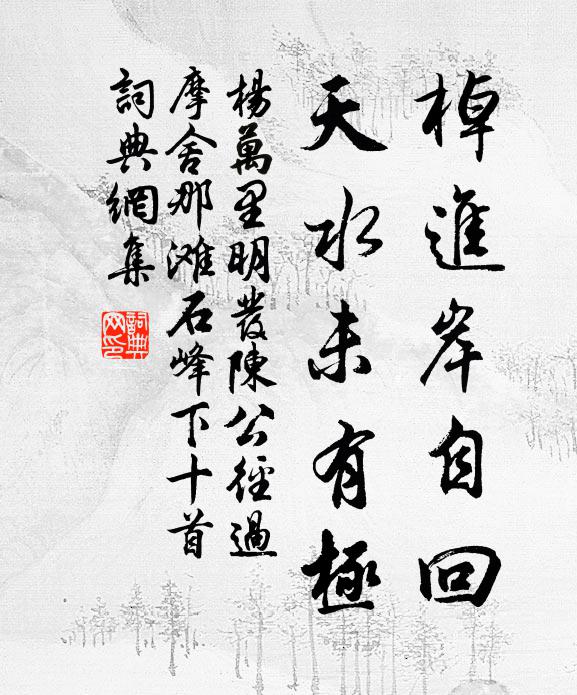 棹進岸自回
天水未有極
楊萬里明發陳公徑過
摩舍那滩石峰下十首
詞典網集
詞典
网印